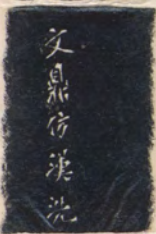 文鼎仿漢洗